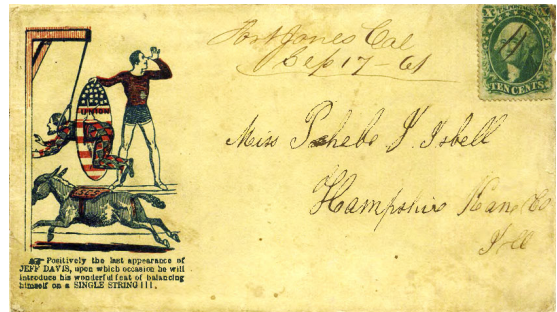 Fort Jones Cal
Sep 17 - 61
TEN CENTS
UNION
Miss Phebe V. Isbell
Hampshire Kane Co
Ill
Positively the last appearance of
JEFF DAVIS, upon which occasion he will
introduce his wonderful feat of balancing
himself on a SINGLE STRING!!!